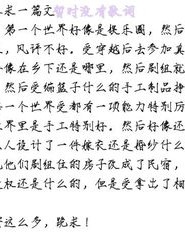 求一篇文 暂时没有歌词
第一个世界好像是娱乐圈，然后
，风评不好。受穿越后去参加真
好像在乡下还是哪里，然后剧组就
，然后受编篮子什么的手工制品挣
每一个世界受都有一项能力特别厉
世界里是手工特别好。然后好像还
人设计了一件嫁衣还是婚纱什么
他们剧组住的房子改成了民宿，
权还是什么的，但是受拿出了相
这么多，跪求！